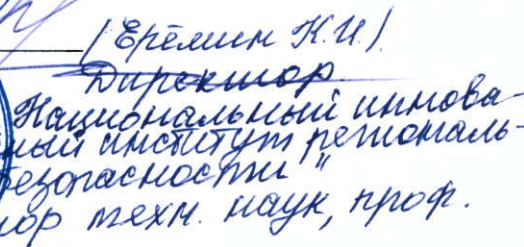 /Ерёмин К.И./
Директор
Национальный иннова-
ный институт региональ-
безопасности"
ор техн. наук, проф.